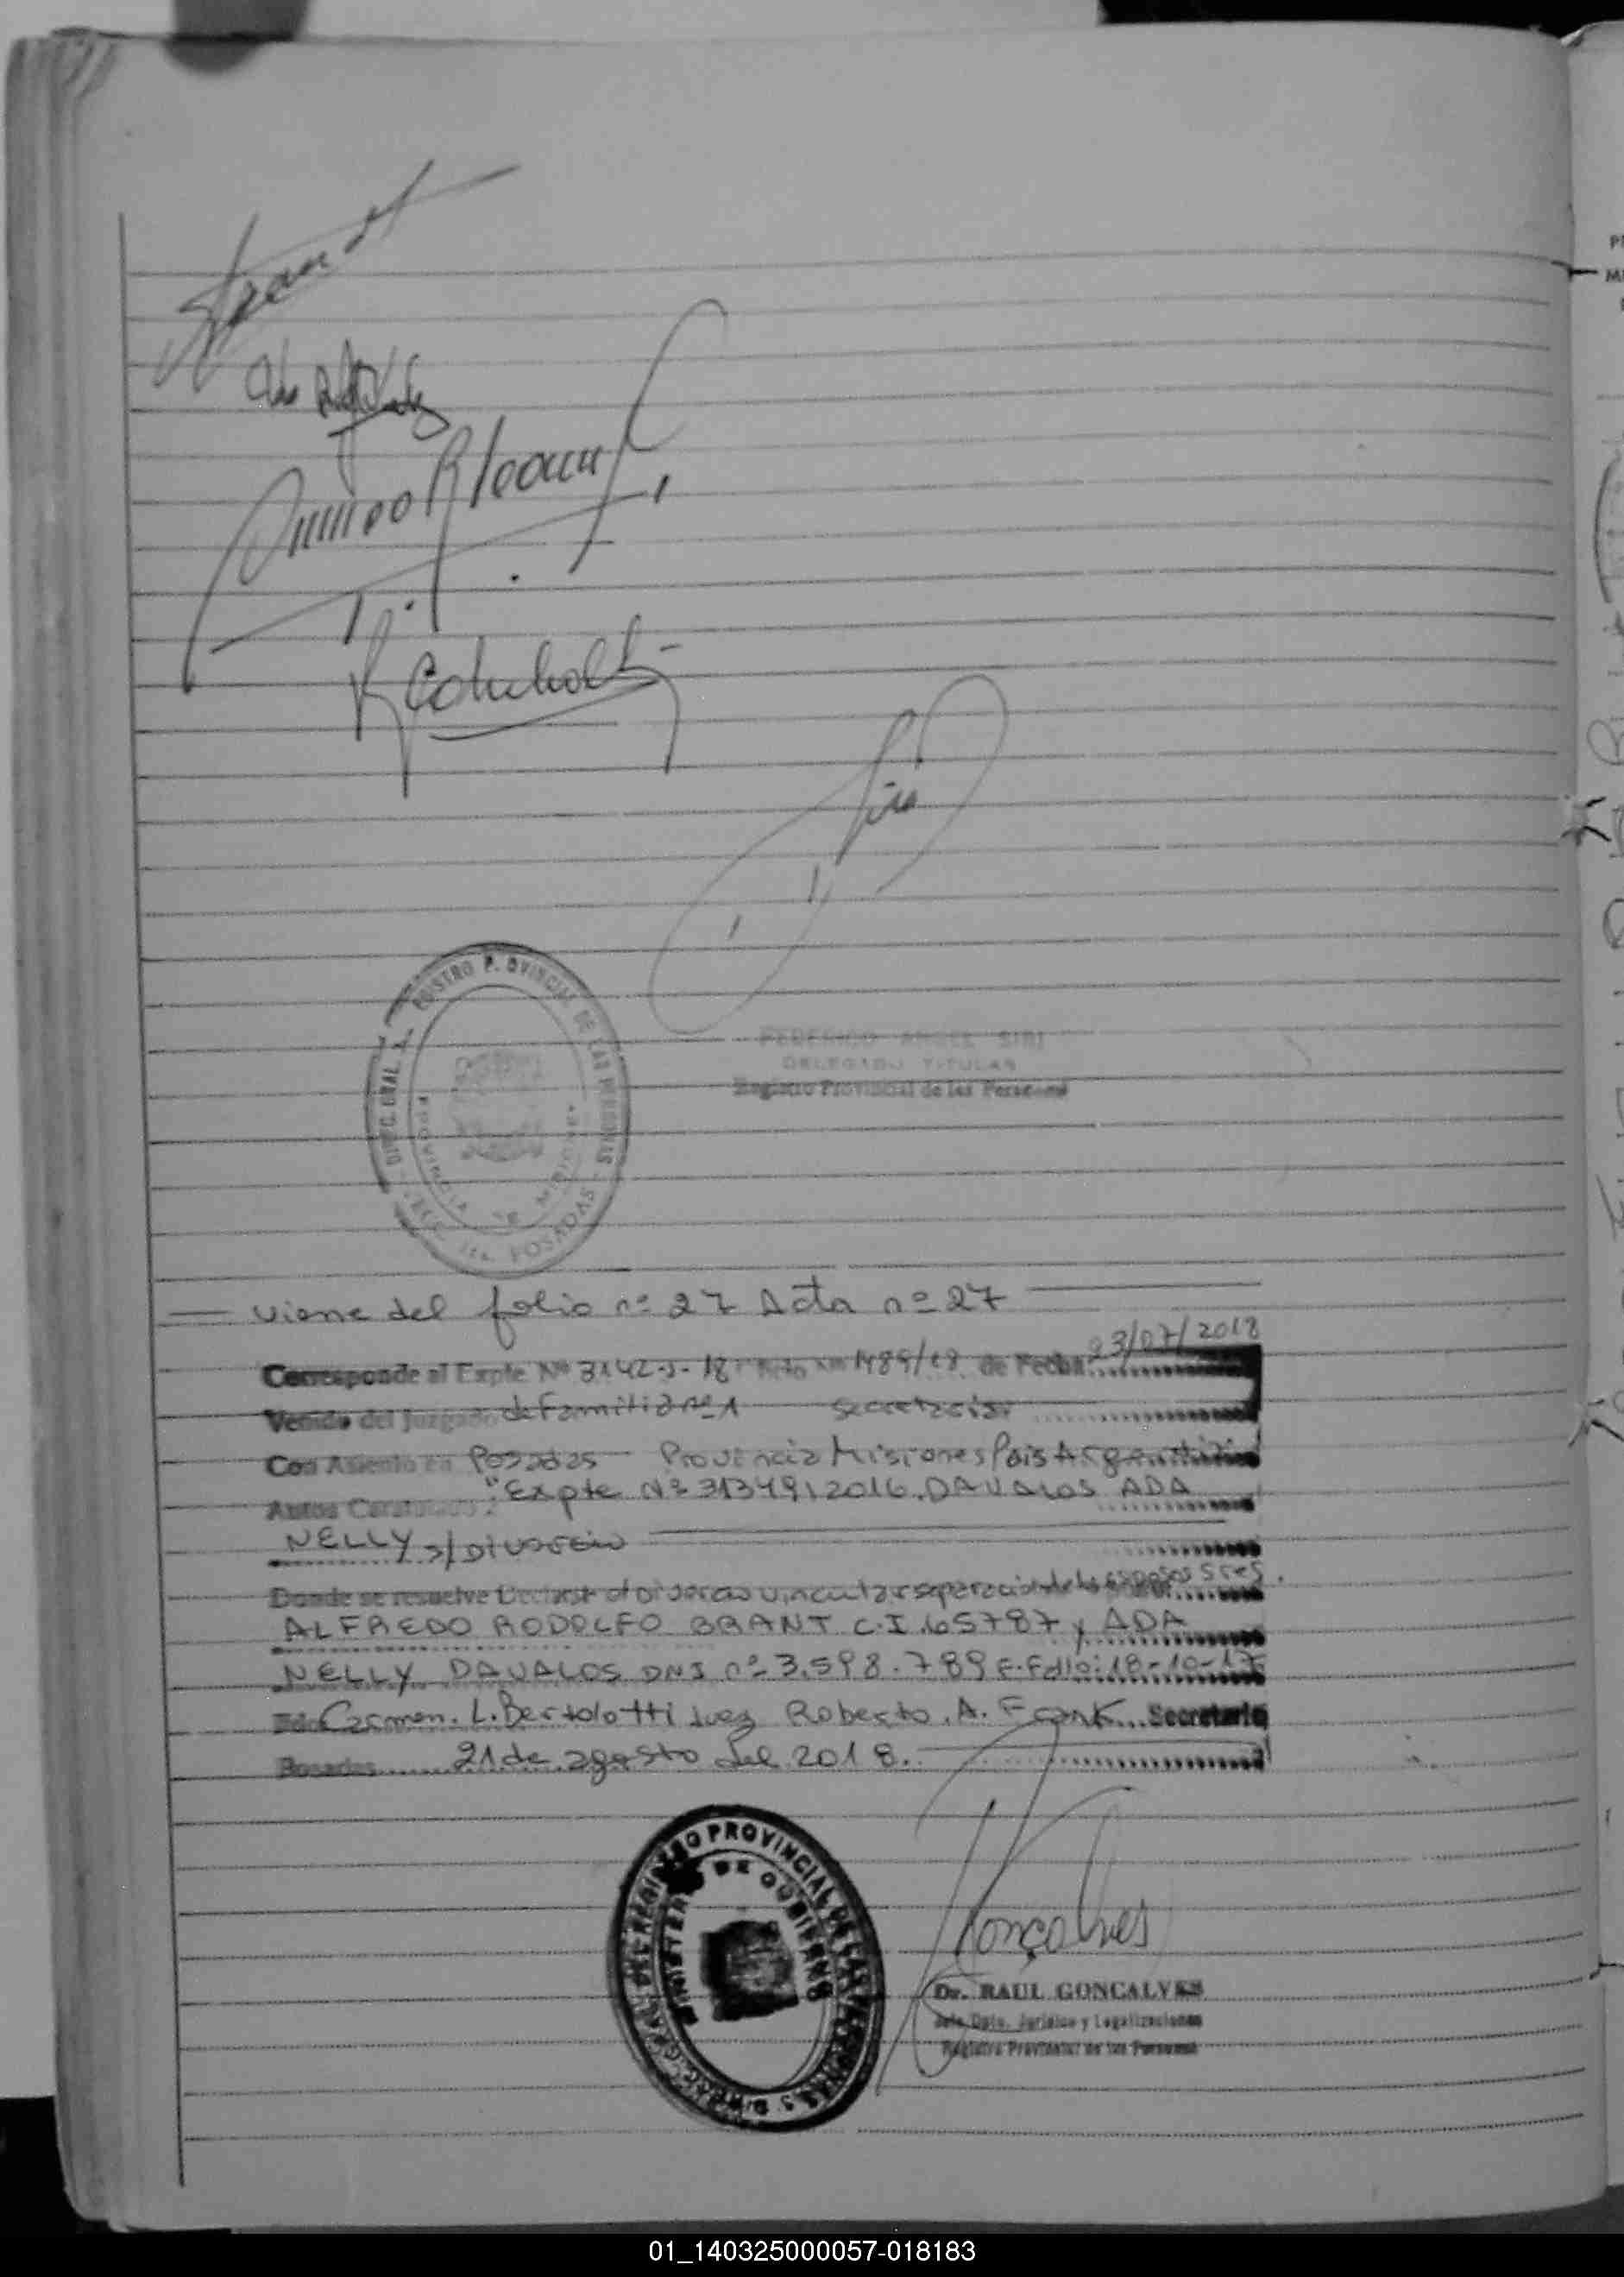 REGISTRO P. OVINCIAL DE LAS PERSONAS
DIREC. GRAL.
PROVINCIA DE MISIONES
POSADAS
FEDERICO ANGEL SIRI
DELEGADO TITULAR
Registro Provincial de las Personas
viene del folio nº 27 Acta nº 27
Corresponde al Expte Nº 3142-J-18 1489/18 de Fecha 23/07/2018
Venido del Juzgado de Familia nº 1 Secretaria
Con Asiento en Posadas Provincia Misiones Pais Argentina
Autos Caratulado: "Expte Nº 31349/2016. DAVALOS ADA
NELLY s/Divorcio
Donde se resuelve Declarar el divorcio vincular separación de los esposos Sres.
ALFREDO RODOLFO BRANT C.I. 65787 y ADA
NELLY DAVALOS DNI nº 3.598.789 F. Fallo: 18-10-17
Fdo Carmen. L. Bertolotti Juez Roberto. A. Frank Secretario
Posadas 21 de agosto del 2018.
REGISTRO PROVINCIAL DE LAS PERSONAS
MINISTERIO DE GOBIERNO
Gonçalves
Dr. RAUL GONCALVES
Jefe Dpto. Jurídico y Legalizaciones
Registro Provincial de las Personas
01_140325000057-018183